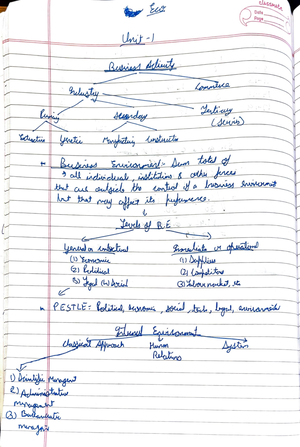 Eco
classmate
Date
Page
Unit - 1
Business Activity
Industry Commerce
Primary Secondary Tertiary
(Service)
Extractive Genetic Manufacturing Construction
Business Environment:- Sum total of
→ all individuals, institutions & other forces
that are outside the control of a business
but that may affect its performance.
Levels of B.E
General or
(1) Economic (1) Suppliers
(2) Political (2) Competitors
(3) Legal (4) Social (3) Labour market, etc
PESTLE = Political, economic, social, legal,
Environment
Classical Approach Human System
Relations
1) Scientific Managment
2) Administrative
management
(3) Bureaucratic